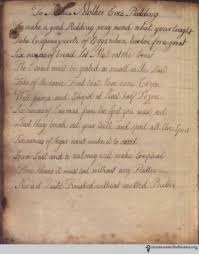 To Make Mother Eve's Pudding
To make a good Pudding pray mind what your taught
Take two penny worth of Eggs when twelve for a groat
Six ounces of bread let Moll eat the Crust
The Crumb must be grated as small as the Dust
Take of the same Fruit that Eve once
Well pared and Chop'd at least half Dozen
Six ounces of Currants from the Grit you must sort
Least they break out your teeth and spoil all the Sport
Six ounces of Sugar wont be too
Some Salt and a nutmeg will make Compleat
Three Hours it must boil without any Flutter
Nor is it quite finished without melted Butter